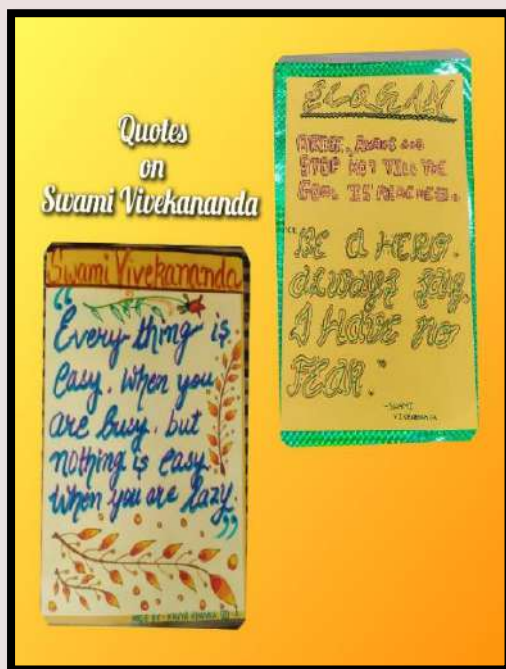 Quotes
on
Swami Vivekananda
Swami Vivekananda
“Every thing is
easy. when you
are busy. but
nothing is easy
when you are lazy.”
MADE BY-
SLOGAN
ARISE, AWAKE AND
STOP NOT TILL THE
GOAL IS REACHED.
“BE A HERO.
always say,
I HAVE NO
FEAR.”
-SWAMI
VIVEKANANDA